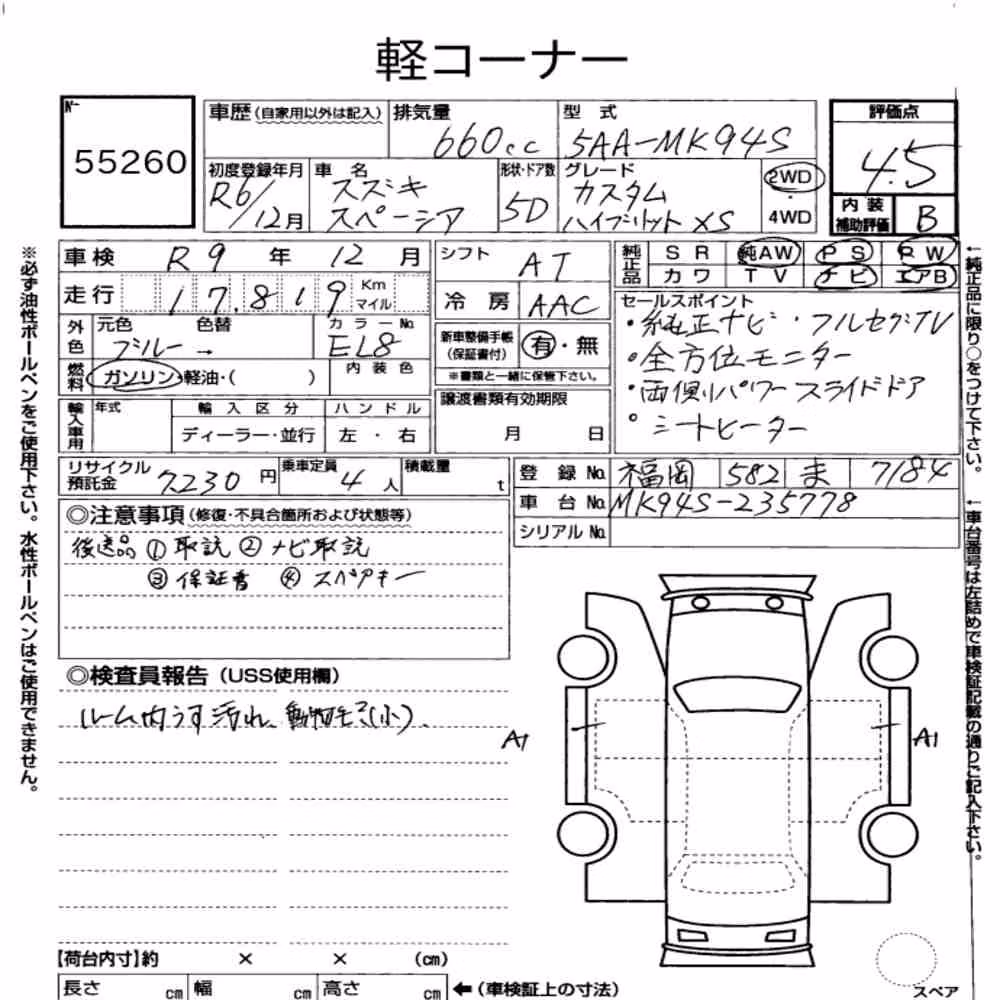 軽コーナー
No 55260
車歴(自家用以外は記入) 排気量 660cc 型式 5AA-MK94S 評価点 4.5
初度登録年月 R6/12月 車名 スズキ スペーシア 形状・ドア数 5D グレード カスタム ハイブリット XS 2WD ・ 4WD 内装補助評価 B
車検 R9年 12月 シフト AT 純正品 SR 純AW PS PW
カワ TV ナビ エアB
走行 17,819 Km マイル 冷房 AAC
外色 元色 ブルー → 色替 カラーNo. EL8 新車整備手帳(保証書付) 有・無
※書類と一緒に保管下さい。
燃料 ガソリン・軽油・( ) 内装色
セールスポイント
・純正ナビ・フルセグTV
・全方位モニター
・両側パワースライドドア
・シートヒーター
輸入車用 年式 輸入区分 ディーラー・並行 ハンドル 左・右 譲渡書類有効期限 月 日
リサイクル預託金 7230円 乗車定員 4人 積載量 t
登録No. 福岡 582 ま 7184
車台No. MK94S-235778
シリアルNo.
◎注意事項(修復・不具合箇所および状態等)
後送品 ① 取説 ② ナビ取説
③ 保証書 ④ スペアキー
◎検査員報告(USS使用欄)
ルーム内うす汚れ、動物毛(小).
A1 A1
【荷台内寸】約 × × (cm)
長さ cm 幅 cm 高さ cm ←(車検証上の寸法)
スペア
※必ず油性ボールペンをご使用下さい。水性ボールペンはご使用できません。
←純正品に限り○をつけて下さい。
←車台番号は左詰めで車検証記載の通りご記入下さい。